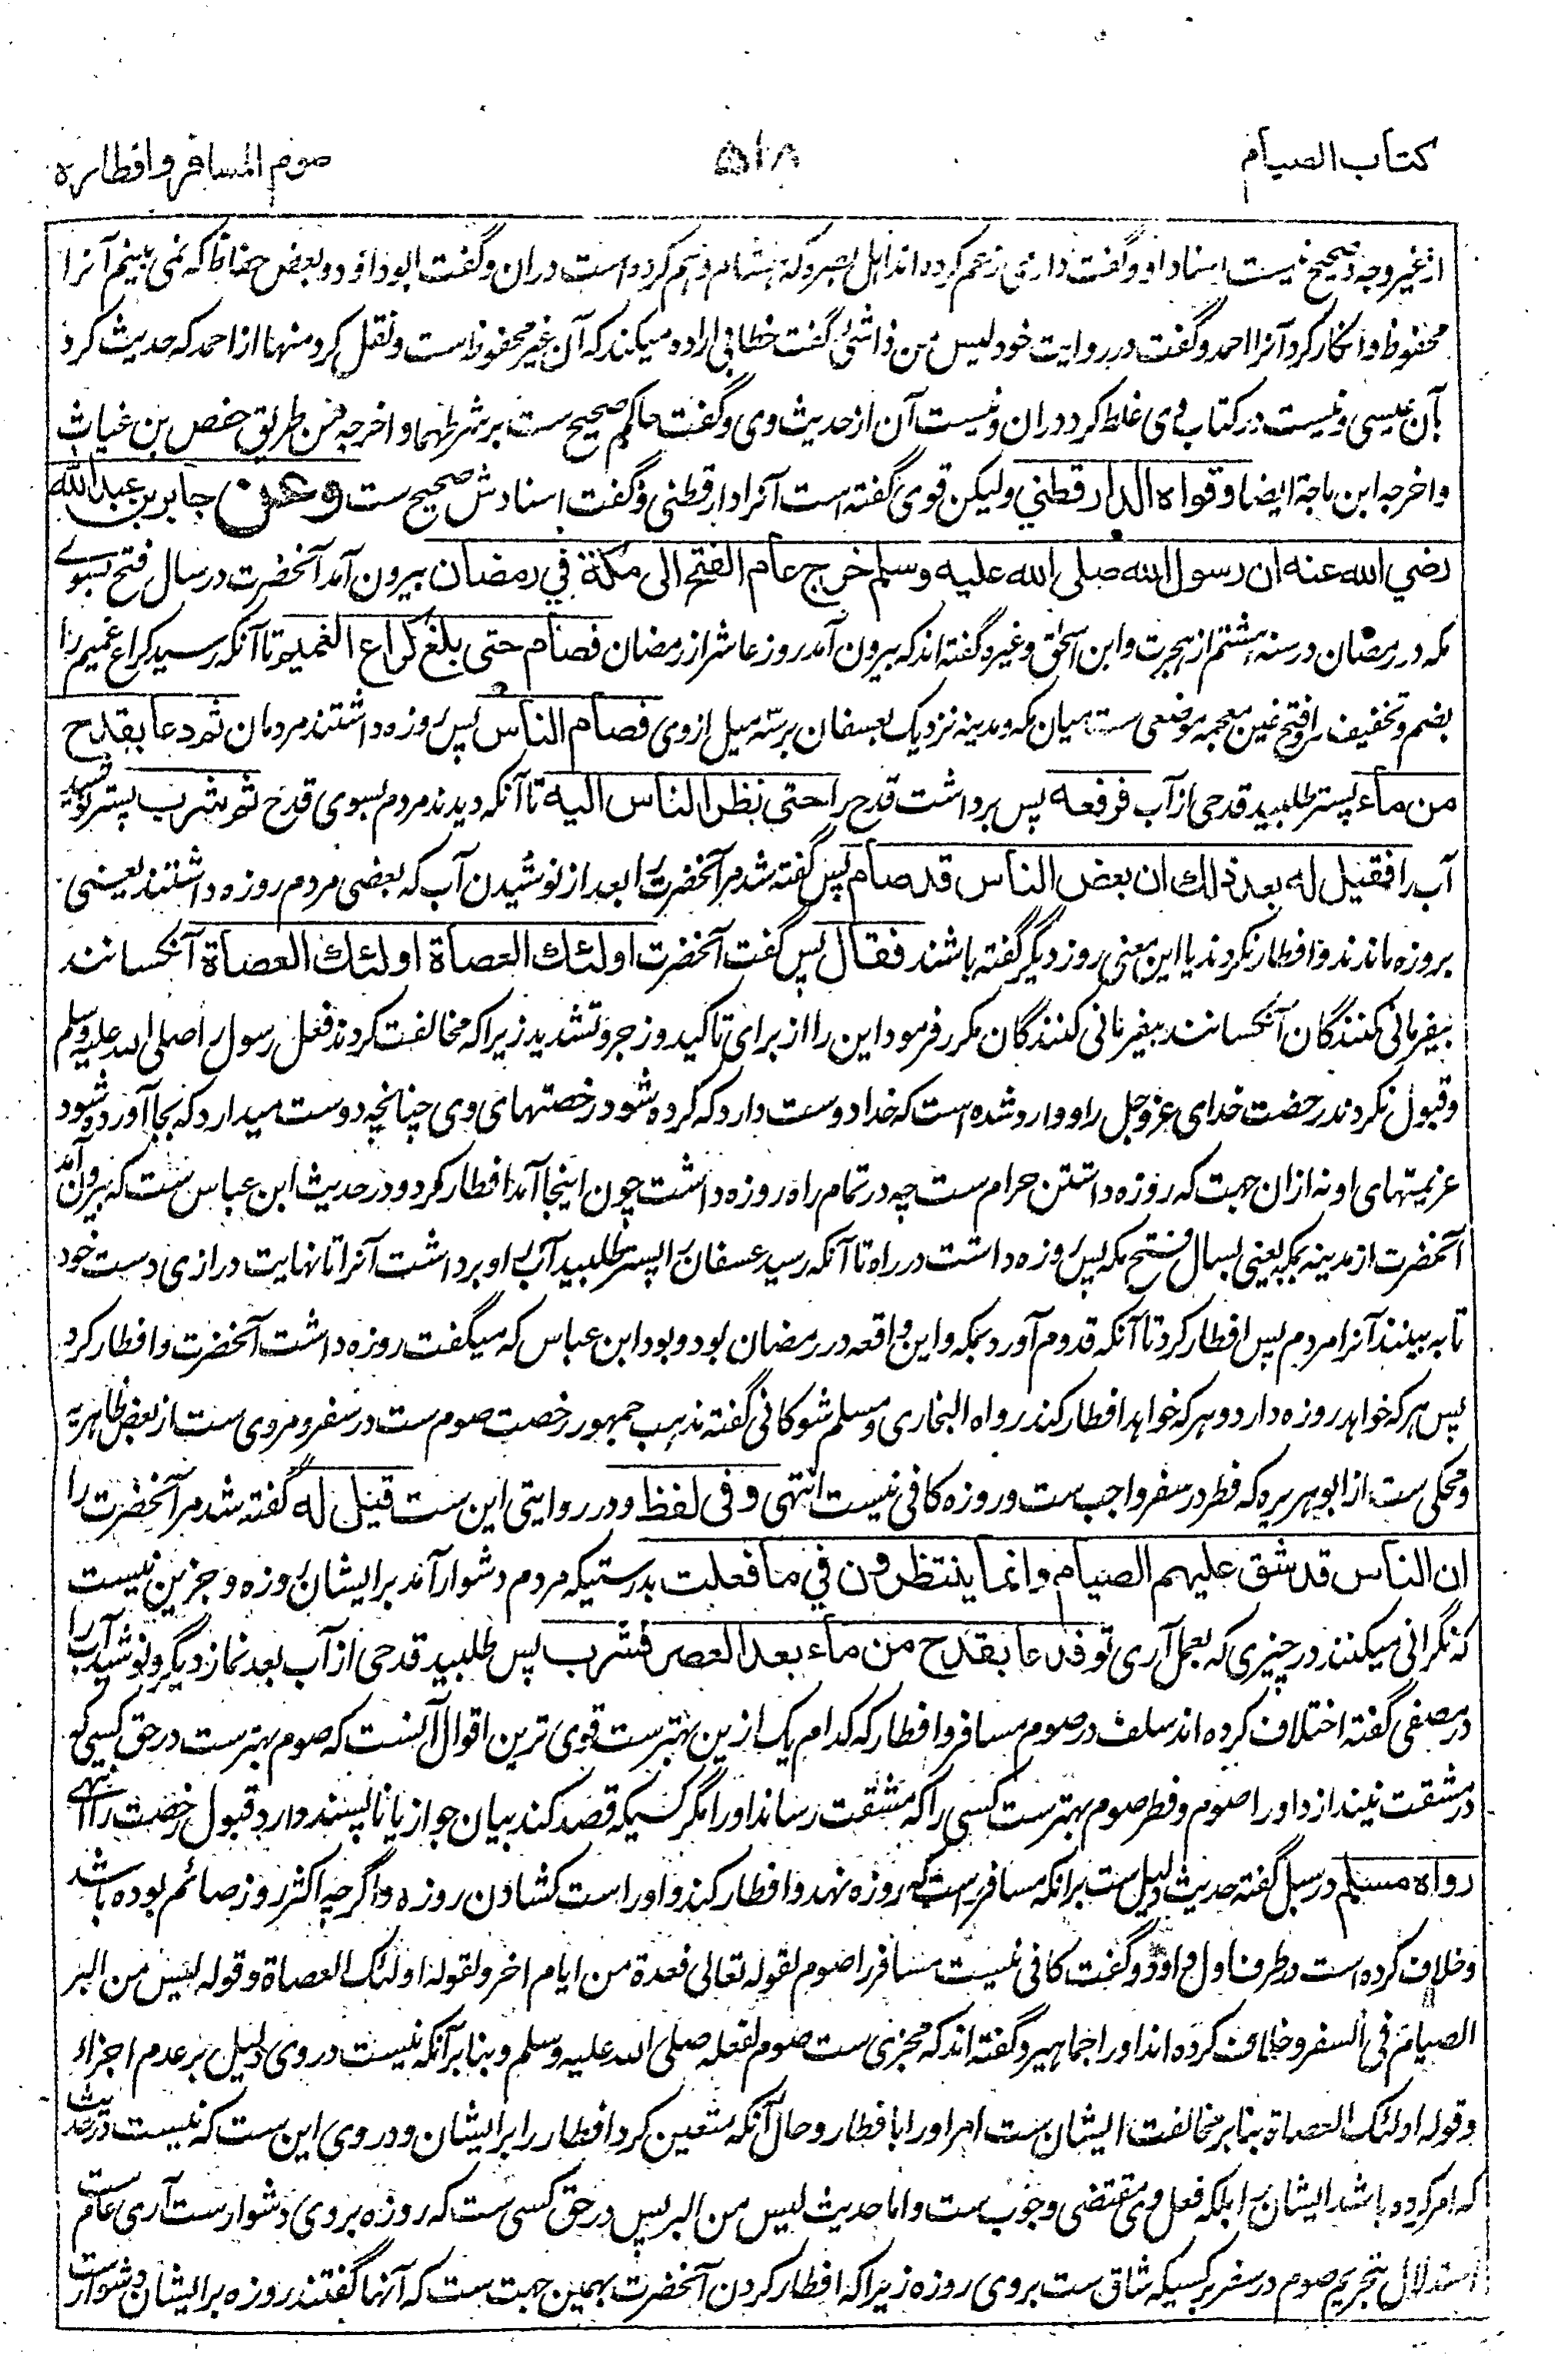 کتاب الصیام ۵۱۸ صوم المسافر وافطاره
از غیر وجه و صحیح نیست اسناد او و گفت دارمی زعم کرده اند اهل بصره که هشام وهم کرده است دران و گفت ابو داؤد و بعض حفاظ که نمی بینیم آنرا
محفوظ و انکار کرد آنرا احمد و گفت در روایت خود لیس من ذا شئ گفت خطابی اراده میکند که آن غیر محفوظ است و نقل کرد مهنا از احمد که حدیث کرد
بآن عیسی و نیست در کتاب وی غلط کرد دران و نیست آن از حدیث وی و گفت حاکم صحیح ست بر شرطهما و اخرجه من طریق حفص بن غیاث
و اخرجه ابن ماجة ایضا وقواه الدارقطني ولیکن قوی گفته است آنرا دارقطنی و گفت اسنادش صحیح ست وعن جابر بن عبد الله
رضي الله عنه ان رسول الله صلی الله علیه وسلم خرج عام الفتح الی مكة في رمضان بیرون آمد آنحضرت در سال فتح بسوے
مکه در رمضان در سنه هشتم از هجرت و ابن اسحٰق و غیره گفته اند که بیرون آمد روز عاشر از رمضان فصام حتی بلغ كراع الغمیم تا آنکه رسید کراع غمیم را
بضم و تخفیف را و فتح غین معجمه موضعی ست میان مکه و مدینه نزدیک بعسفان بر سه میل از وی فصام الناس پس روزه داشتند مردمان ثم دعا بقدح
من ماء پستر طلبید قدحی از آب فرفعه پس برداشت قدح را حتی نظر الناس الیه تا آنکه دیدند مردم بسوی قدح ثم شرب پستر نوشید
آب را فقیل له بعد ذلك ان بعض الناس قد صام پس گفته شد مر آنحضرت را بعد از نوشیدن آب که بعضی مردم روزه داشتند یعنی
بروزه ماندند و افطار نکردند یا این معنی روز دیگر گفته باشند فقال پس گفت آنحضرت اولئك العصاة اولئك العصاة آنکسانند
بیفرمانی کنندگان آنکسانند بیفرمانی کنندگان مکرر فرمود این را از برای تاکید و زجر و تشدید زیرا که مخالفت کردند فعل رسول را صلی الله علیه وسلم
و قبول نکردند رخصت خدای عز و جل را و وارد شده است که خدا دوست دارد که کرده شود رخصتهای وی چنانچه دوست میدارد که بجا آورده شود
عزیمتهای او نه ازان جهت که روزه داشتن حرام ست چه در تمام راه روزه داشت چون اینجا آمد افطار کرد و در حدیث ابن عباس ست که بیرون آمد
آنحضرت از مدینه بمکه یعنی بسال فتح مکه پس روزه داشت در راه تا آنکه رسید عسفان را پستر طلبید آب را و برداشت آنرا تا نهایت درازی دست خود
تا به بینند آنرا مردم پس افطار کرد تا آنکه قدوم آورد بمکه و این واقعه در رمضان بود و بود ابن عباس که میگفت روزه داشت آنحضرت و افطار کرد
پس هر که خواهد روزه دارد و هر که خواهد افطار کند رواه البخاری و مسلم شوکانی گفته مذهب جمهور رخصت صوم ست در سفر و مروی ست از بعض ظاهریه
و محکی ست از ابو هریره که فطر در سفر واجب ست و روزه کافی نیست انتهی وفی لفظ و در روایتی این ست قیل له گفته شد مر آنحضرت را
ان الناس قد شق علیهم الصیام وانما ینتظرون في ما فعلت بدرستیکه مردم دشوار آمد بر ایشان روزه و جز این نیست
که نگرانی میکنند در چیزی که بعمل آری تو فدعا بقدح من ماء بعد العصر فشرب پس طلبید قدحی از آب بعد نماز دیگر و نوشید آب را
در مصفی گفته اختلاف کرده اند سلف در صوم مسافر و افطار که کدام یک ازین بهتر ست قوی ترین اقوال آنست که صوم بهتر ست در حق کسی که
در مشقت نیندازد او را صوم و فطر صوم بهتر ست کسی را که مشقت رساند او را مگر کسیکه قصد کند بیان جواز یا ناپسند دارد قبول رخصت را انتهے
رواه مسلم در سبل گفته حدیث دلیل ست برانکه مسافر راست که روزه نهد و افطار کند و او راست کشادن روزه و اگرچه اکثر روز صائم بوده باشد
و خلاف کرده است در طرف اول داؤد و گفت کافی نیست مسافر را صوم لقوله تعالی فعدة من ایام اخر و لقوله اولئك العصاة و قوله لیس من البر
الصیام فی السفر و خلاف کرده اند او را جماهیر و گفته اند که مجزی ست صوم لفعله صلی الله علیه وسلم و بنا بر آنکه نیست در وی دلیل بر عدم اجزاء
و قوله اولئك العصاة بنا بر مخالفت ایشان ست امر او را بافطار و حال آنکه متعین کرد افطار را بر ایشان و در وی این ست که نیست در حدیث
که امر کرده باشد ایشان را بلکه فعل وی مقتضی وجوب ست و اما حدیث لیس من البر پس در حق کسی ست که روزه بروی دشوار ست آری تمام ست
استدلال بتحریم صوم در سفر بر کسیکه شاق ست بروی روزه زیرا که افطار کردن آنحضرت بهمین جهت ست که آنها گفتند روزه بر ایشان دشوار ست